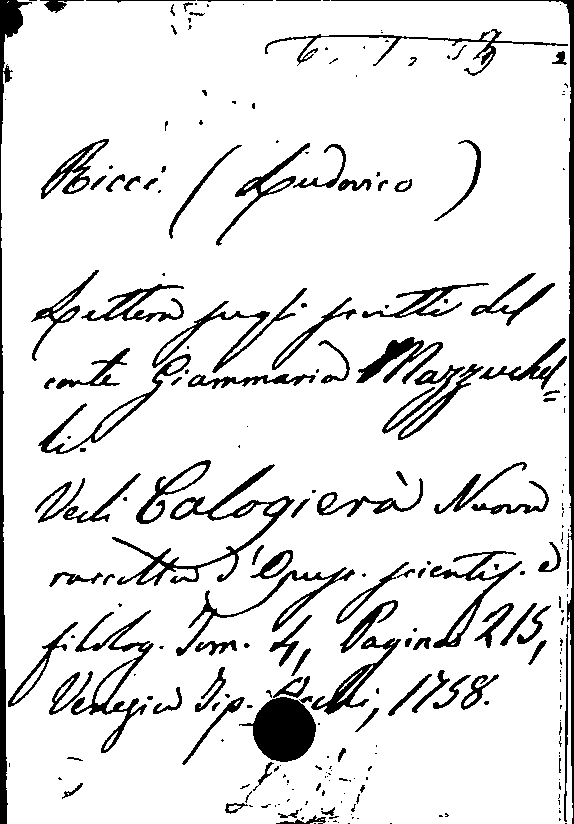 6. 7. 53
Ricci (Ludovico)
Lettera sugli scritti del
conte Giammaria Mazzuchel=
li.
Vedi Calogierà Nuova
raccolta d'Opusc. scientif. e
filolog. Tom. 4, Pagina 215,
Venezia Tip. 1758.